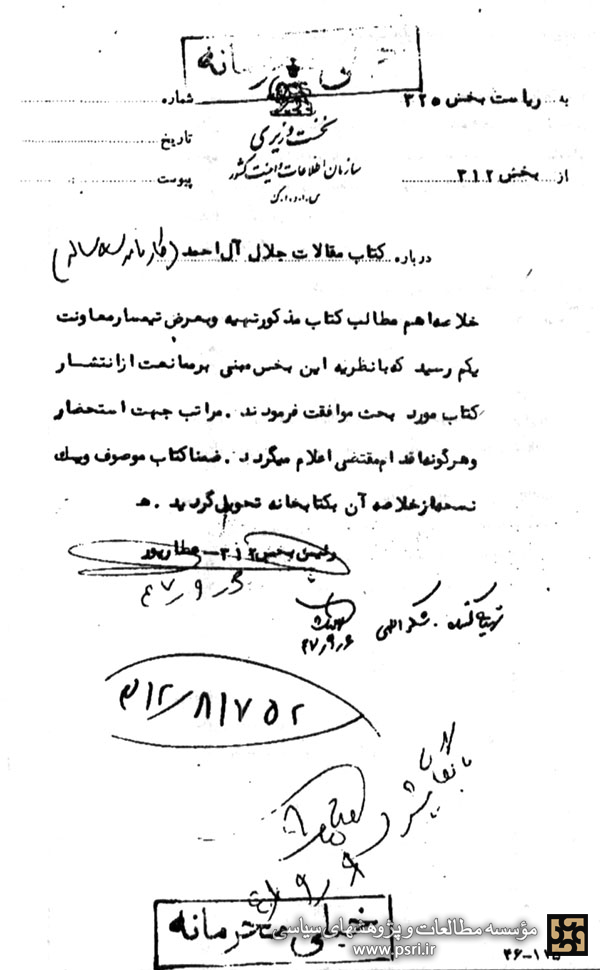 خیلی محرمانه
به ... ریاست بخش ۳۲۵
شماره
نخست وزیری
تاریخ
سازمان اطلاعات و امنیت کشور
از ... بخش ۳۱۲
پیوست
س.ا.و.ا.ک
درباره کتاب مقالات جلال آل احمد (کارنامه سه ساله)
خلاصه اهم مطالب کتاب مذکور تهیه و بعرض تیمسار معاونت
یکم رسید که با نظریه این بخش مبنی بر ممانعت از انتشار
کتاب مورد بحث موافقت فرمودند . مراتب جهت استحضار
و هرگونه اقدام مقتضی اعلام میگردد . ضمنا کتاب موصوف و یک
نسخه از خلاصه آن بکتابخانه تحویل گردید . ھ
رئیس بخش ۳۱۲ - عطارپور
۴۷/۹/۶
تهیه کننده . شکراللهی
۴۷/۹/۶
۳۱۲/۸۱۷۵۲
خیلی محرمانه
مؤسسه مطالعات و پژوهشهای سیاسی
www.psri.ir
۳۶-۱۲۵